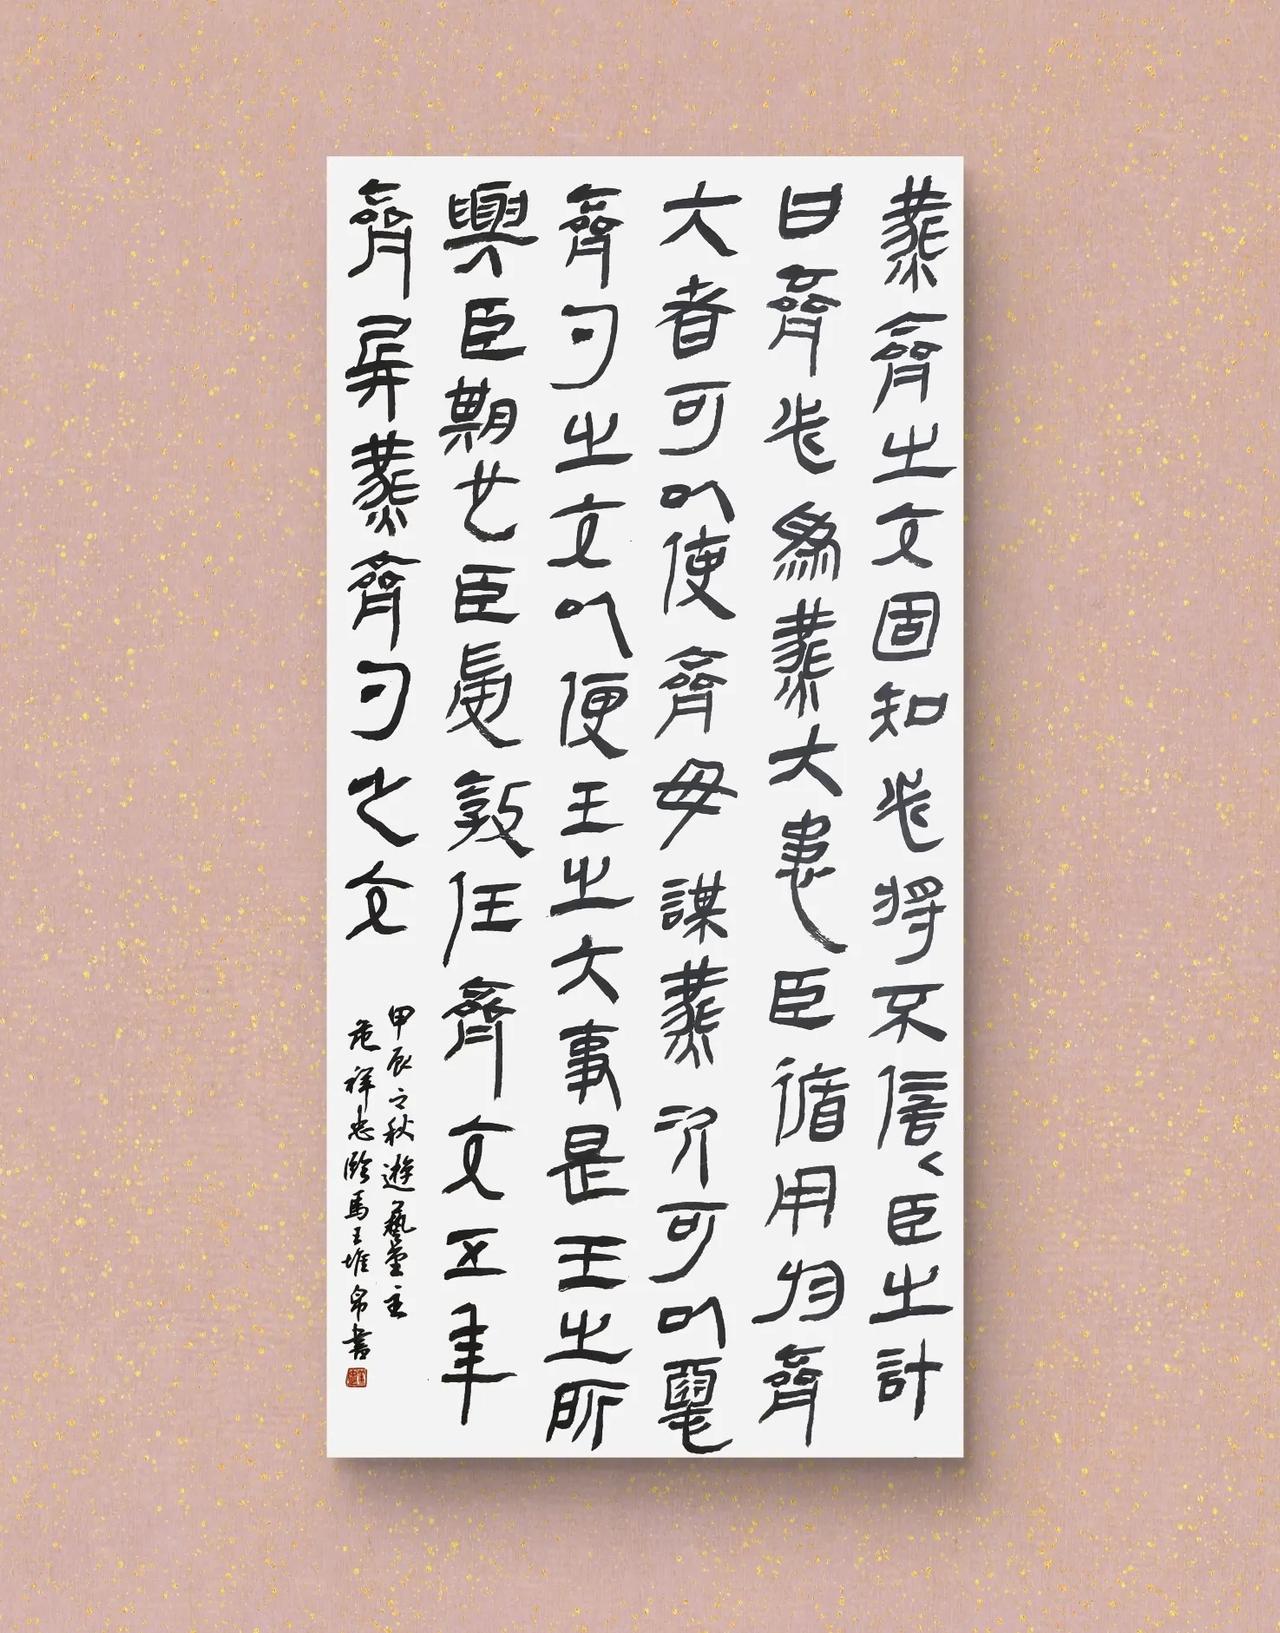 燕齊之交固知必將不信臣之計
曰齊必為燕大患臣循用於齊
大者可以使齊毋謀燕次可以惡
齊勺之交以便王之大事是王之所
與臣期也臣受教任齊交五年
齊兵燕齊勺之交
甲辰之秋遊藝堂主
危祥忠臨馬王堆帛書